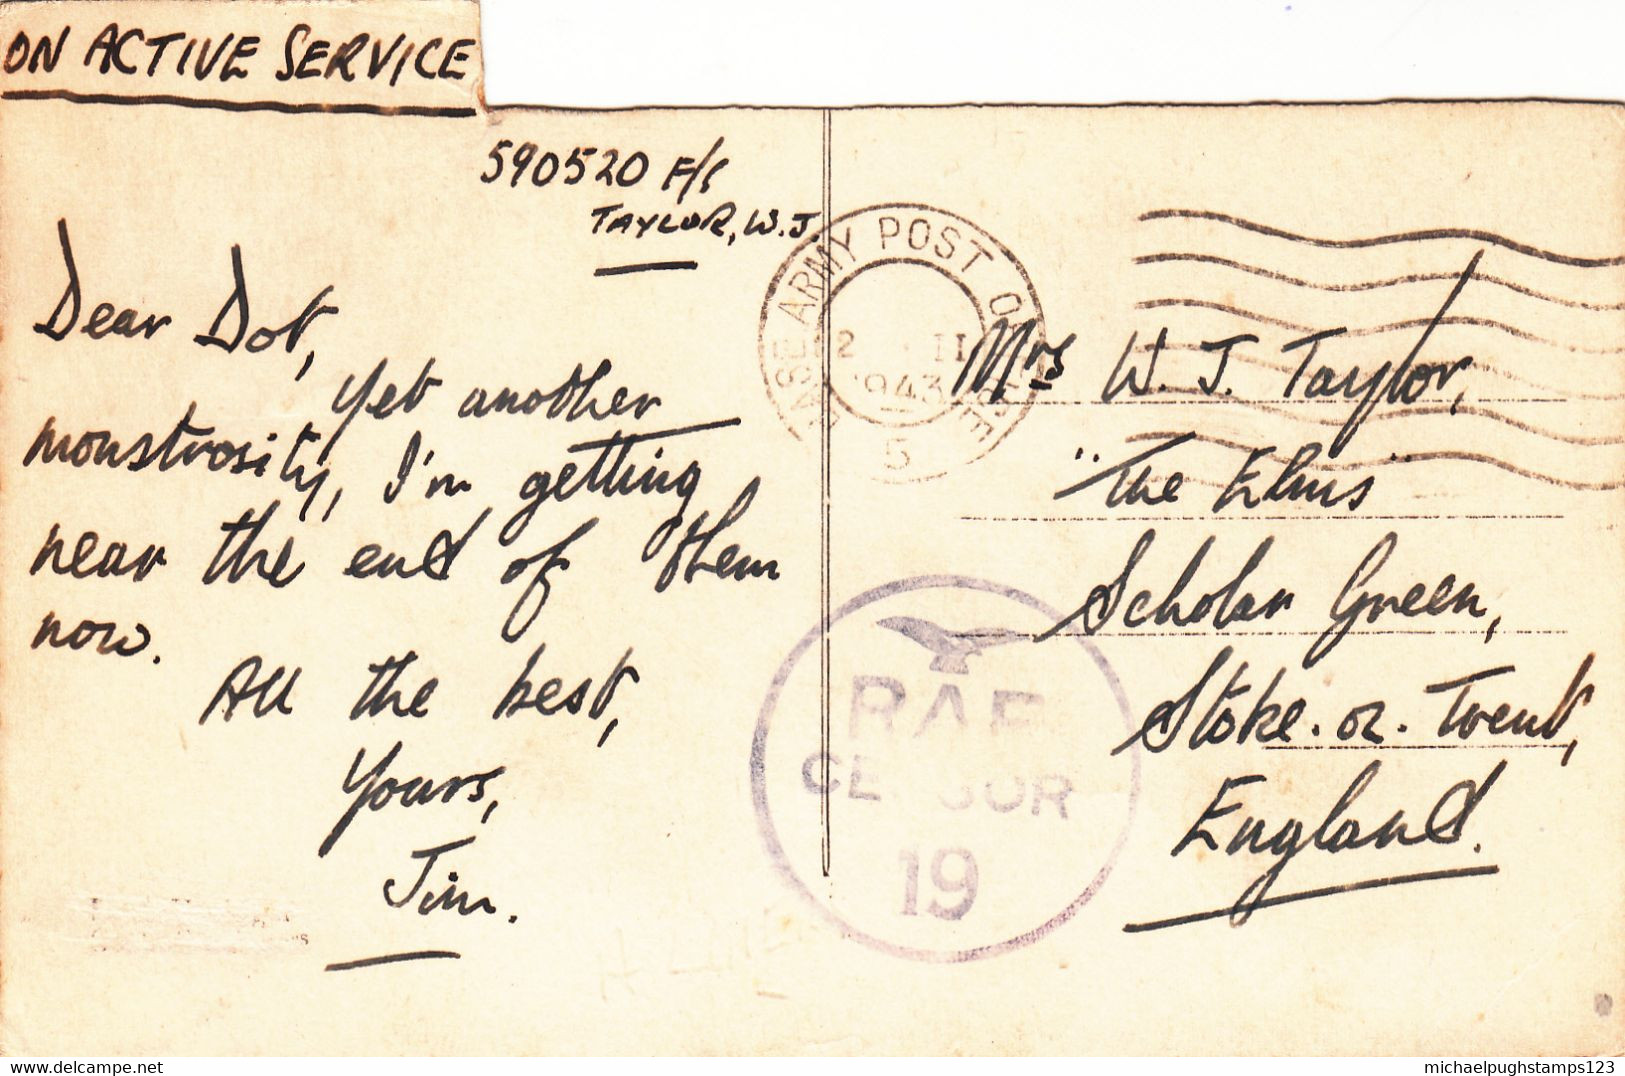 ON ACTIVE SERVICE
590520 F/S
TAYLOR, W.J.
Dear Dot,
Yet another
monstrosity, I'm getting
near the end of them
now.
All the best,
Yours,
Jim.
BASE ARMY POST OFFICE
2 II
1943
5
Mrs W. J. Taylor,
"The Elms"
Scholar Green,
Stoke-on-Trent,
England.
RAF
CENSOR
19
michaelpughstamps123